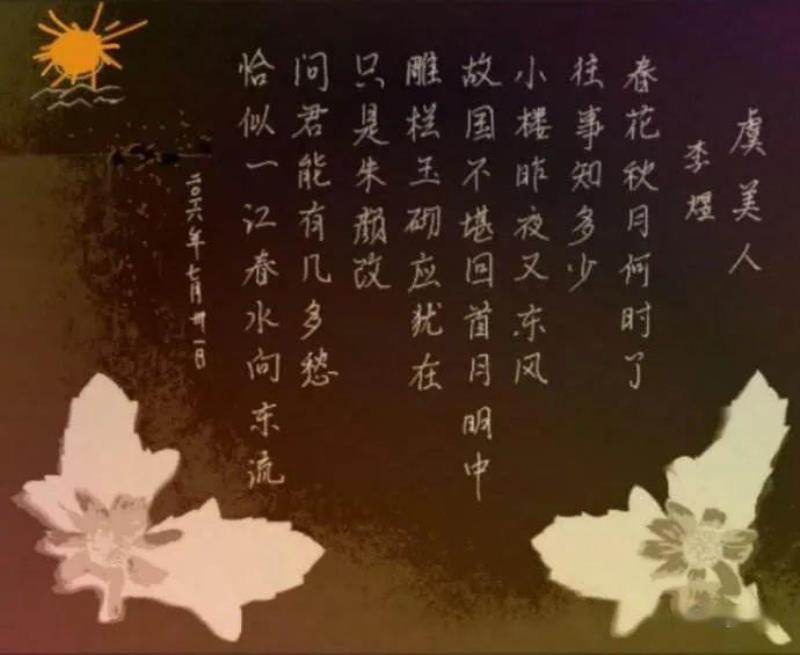 虞美人
李煜
春花秋月何时了
往事知多少
小楼昨夜又东风
故国不堪回首月明中
雕栏玉砌应犹在
只是朱颜改
问君能有几多愁
恰似一江春水向东流
二〇一六年七月卅一日